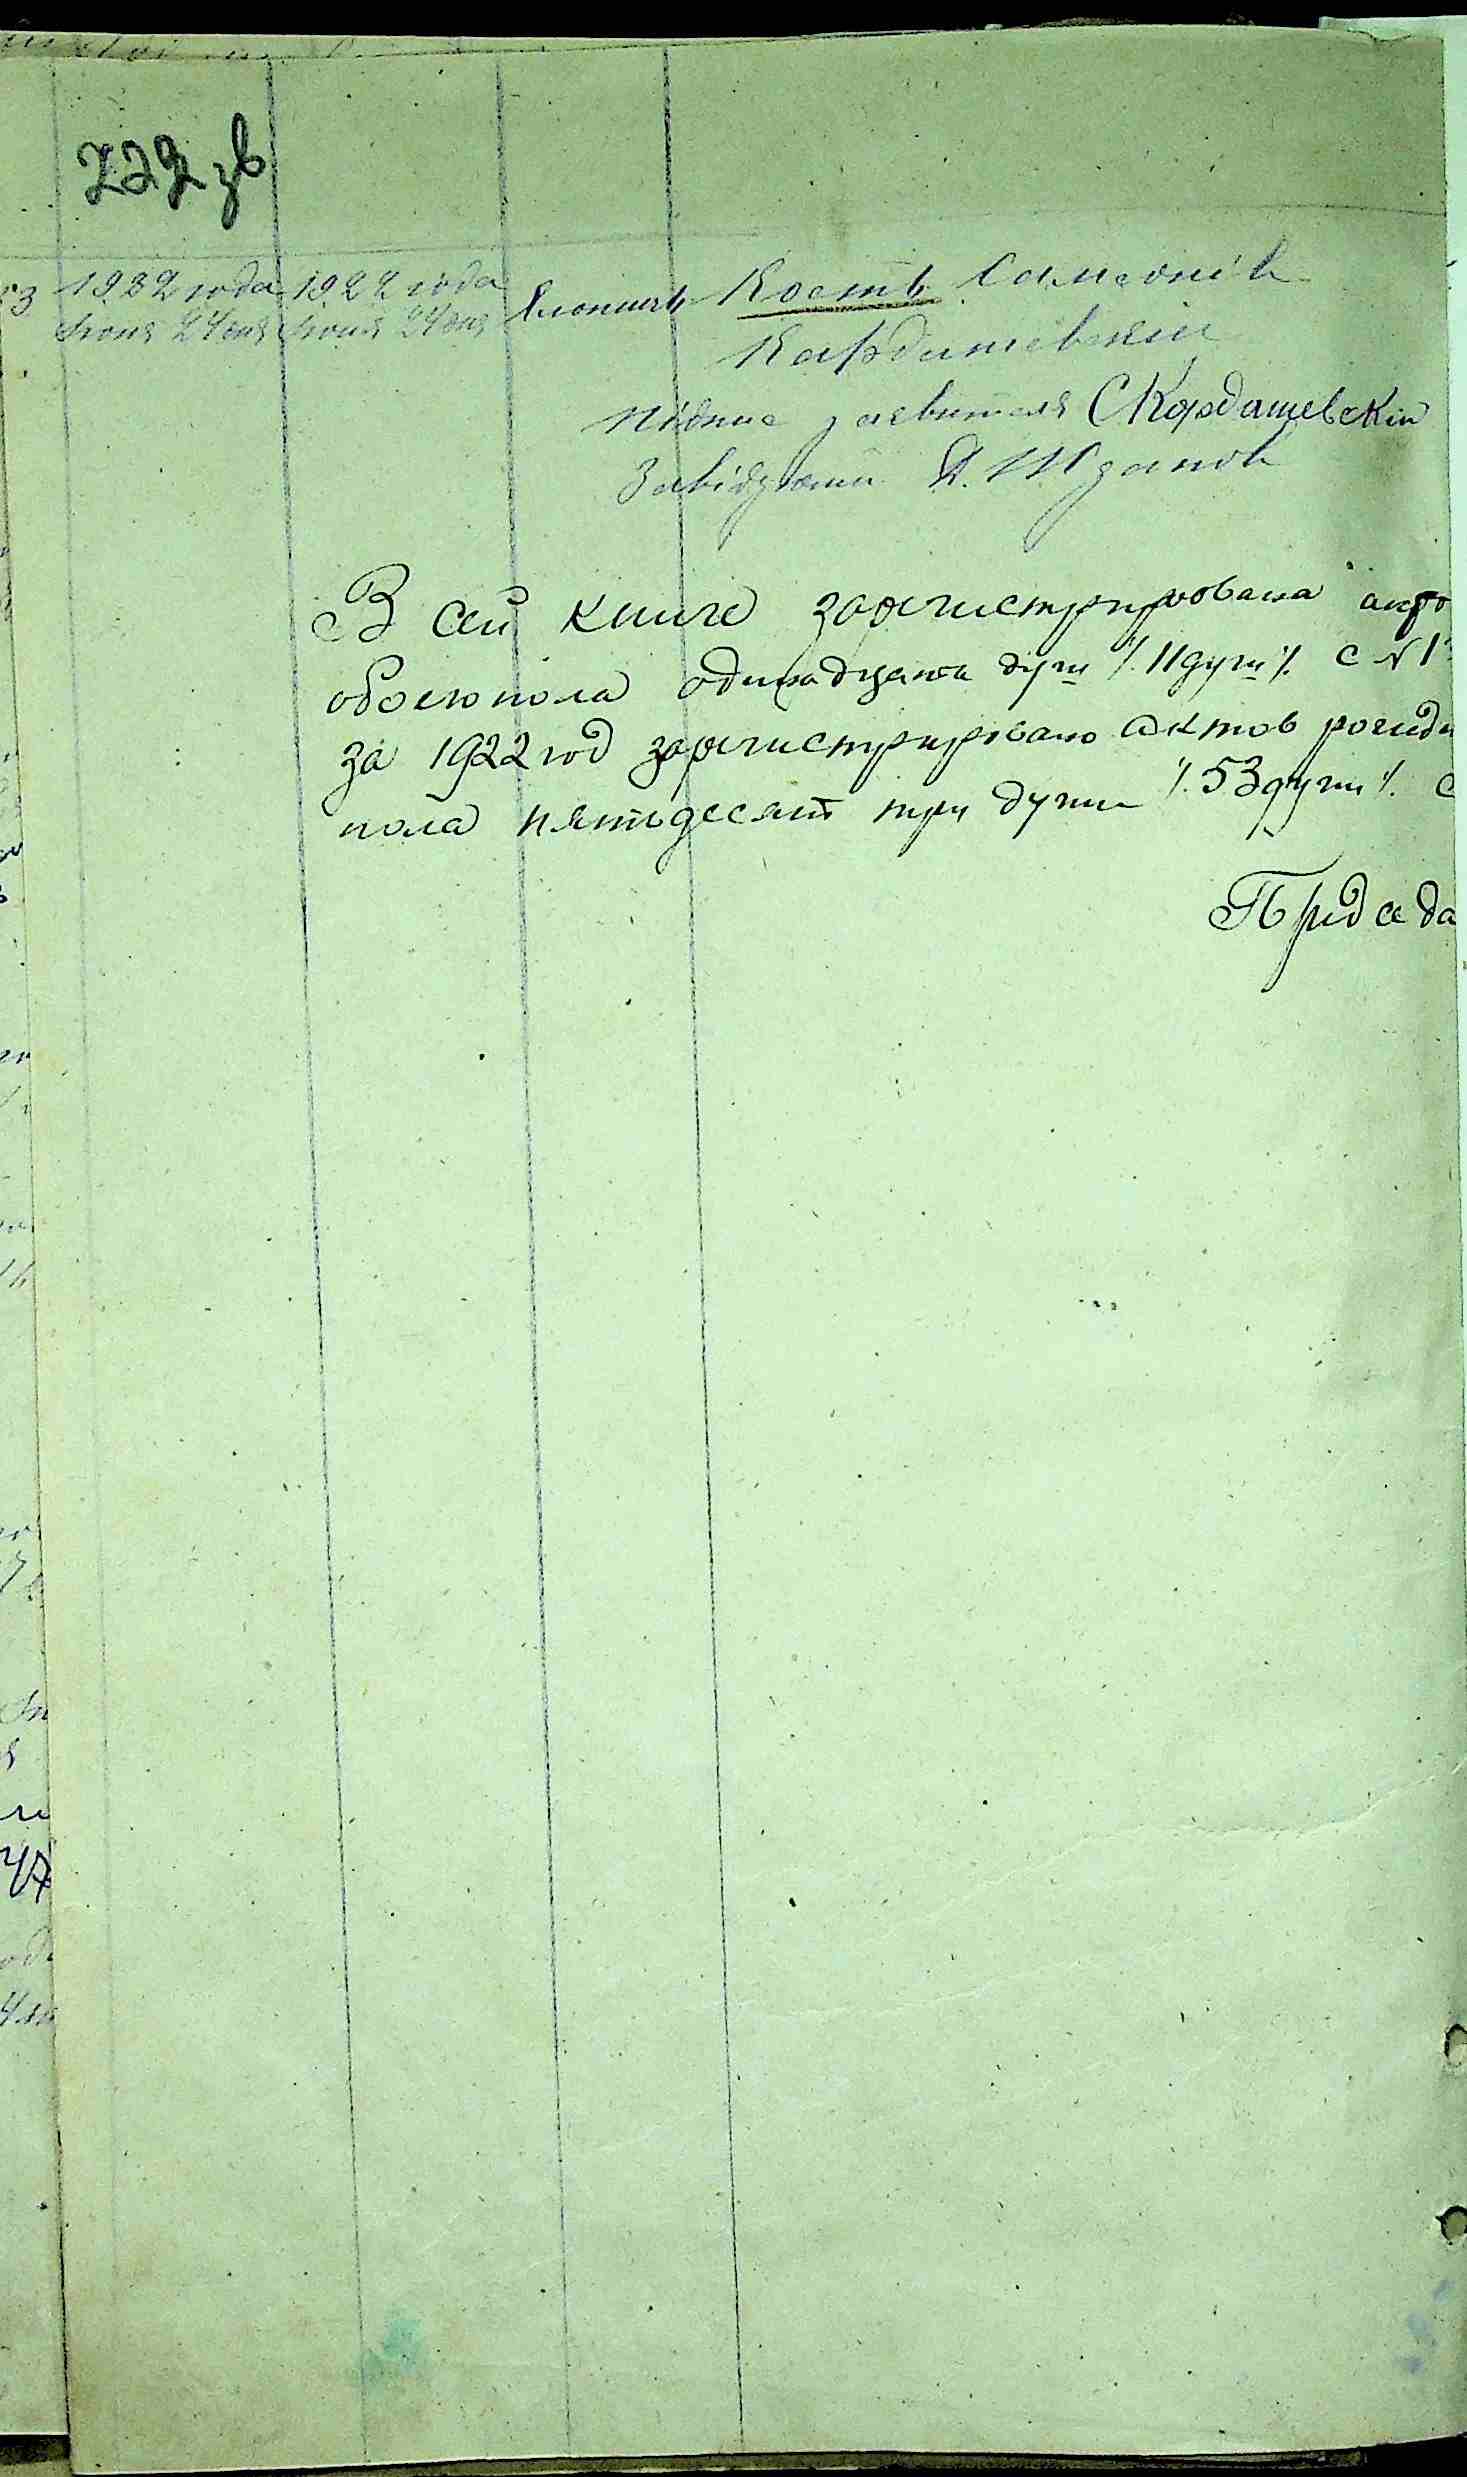 222 зв
53 1922 года 1922 года Хлопчик Кость Самсонів
Іюня 24 дня Іюня 24 дня
Кардашевский
Підпис заявителя С Кардашевский
Завідуючий Жданов
В сей книге зарегистрирована акто
обоего пола одинадцать душ %. 11 душ %. С № 1
за 1922 год зарегистрировано актов рожде
пола пятьдесят три души %. 53 души %. С
Председа